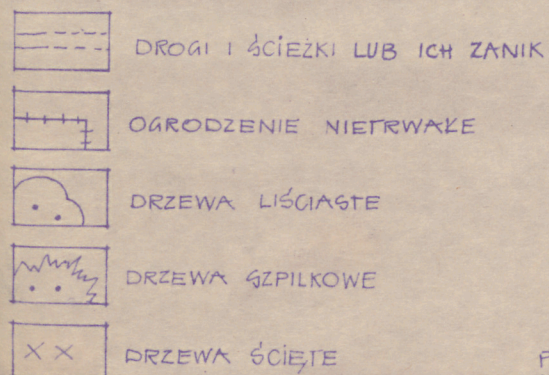 DROGI I ŚCIEŻKI LUB ICH ZANIK
OGRODZENIE NIETRWAŁE
DRZEWA LIŚCIASTE
DRZEWA SZPILKOWE
DRZEWA ŚCIĘTE